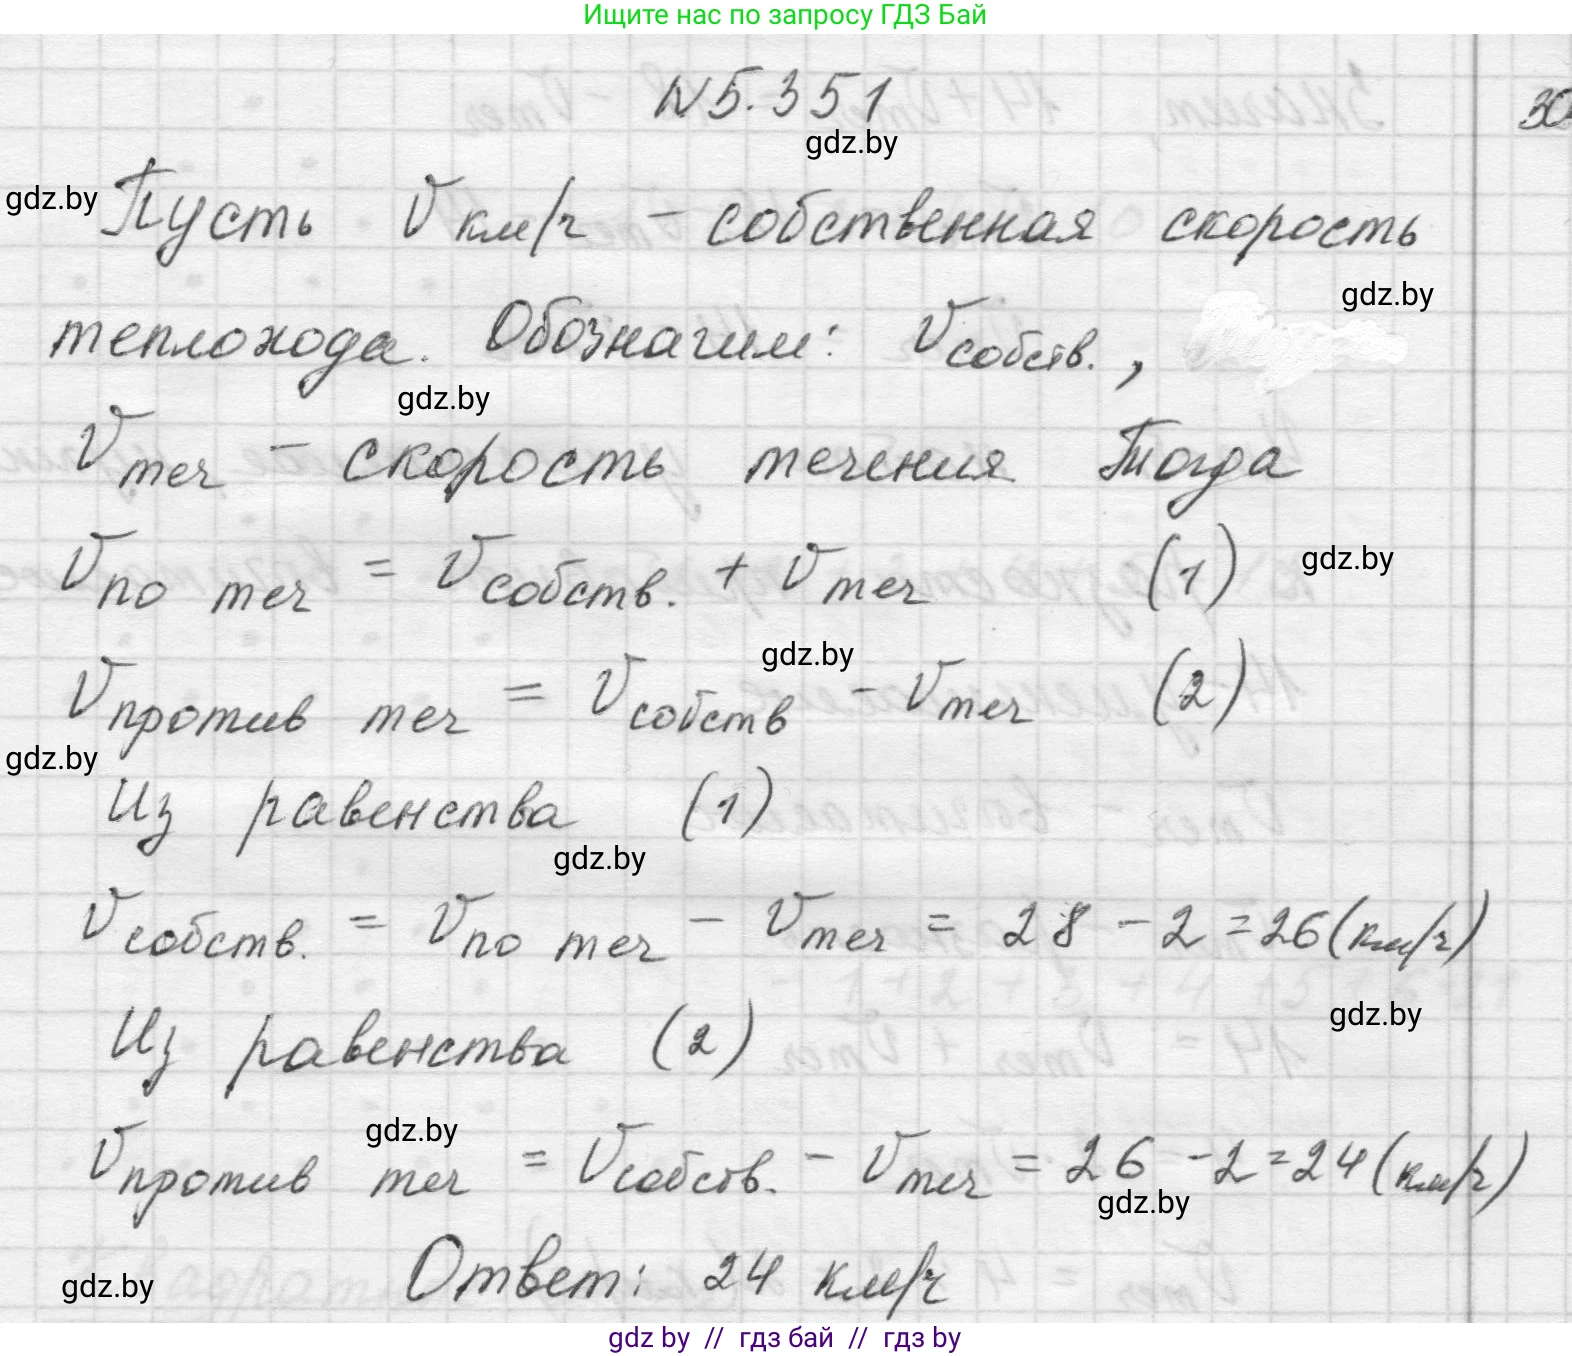 Ищите нас по запросу ГДЗ Бай
N 5.351
30
gdz.by
gdz.by
Пусть V км/ч - собственная скорость
gdz.by
теплохода. Обозначим: V собств. ,
gdz.by
V теч - скорость течения Тогда
V по теч = V собств. + V теч (1)
gdz.by
gdz.by
V против теч = V собств - V теч (2)
gdz.by
Из равенства (1)
gdz.by
V собств. = V по теч - V теч = 28 - 2 = 26 (км/ч)
gdz.by
Из равенства (2)
gdz.by
V против теч = V собств. - V теч = 26 - 2 = 24 (км/ч)
gdz.by
Ответ: 24 км/ч
gdz.by
gdz by // гдз бай // гдз by